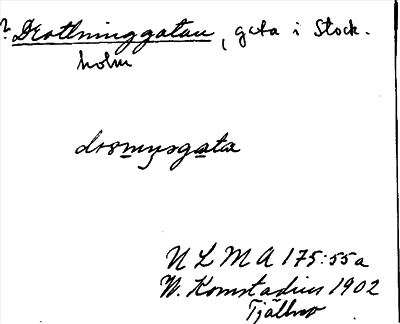 ? Drottninggatan, gata i Stock-
holm
drsmnsgata
N L M A 175:55a
W. Komstadius 1902
Tjällmo